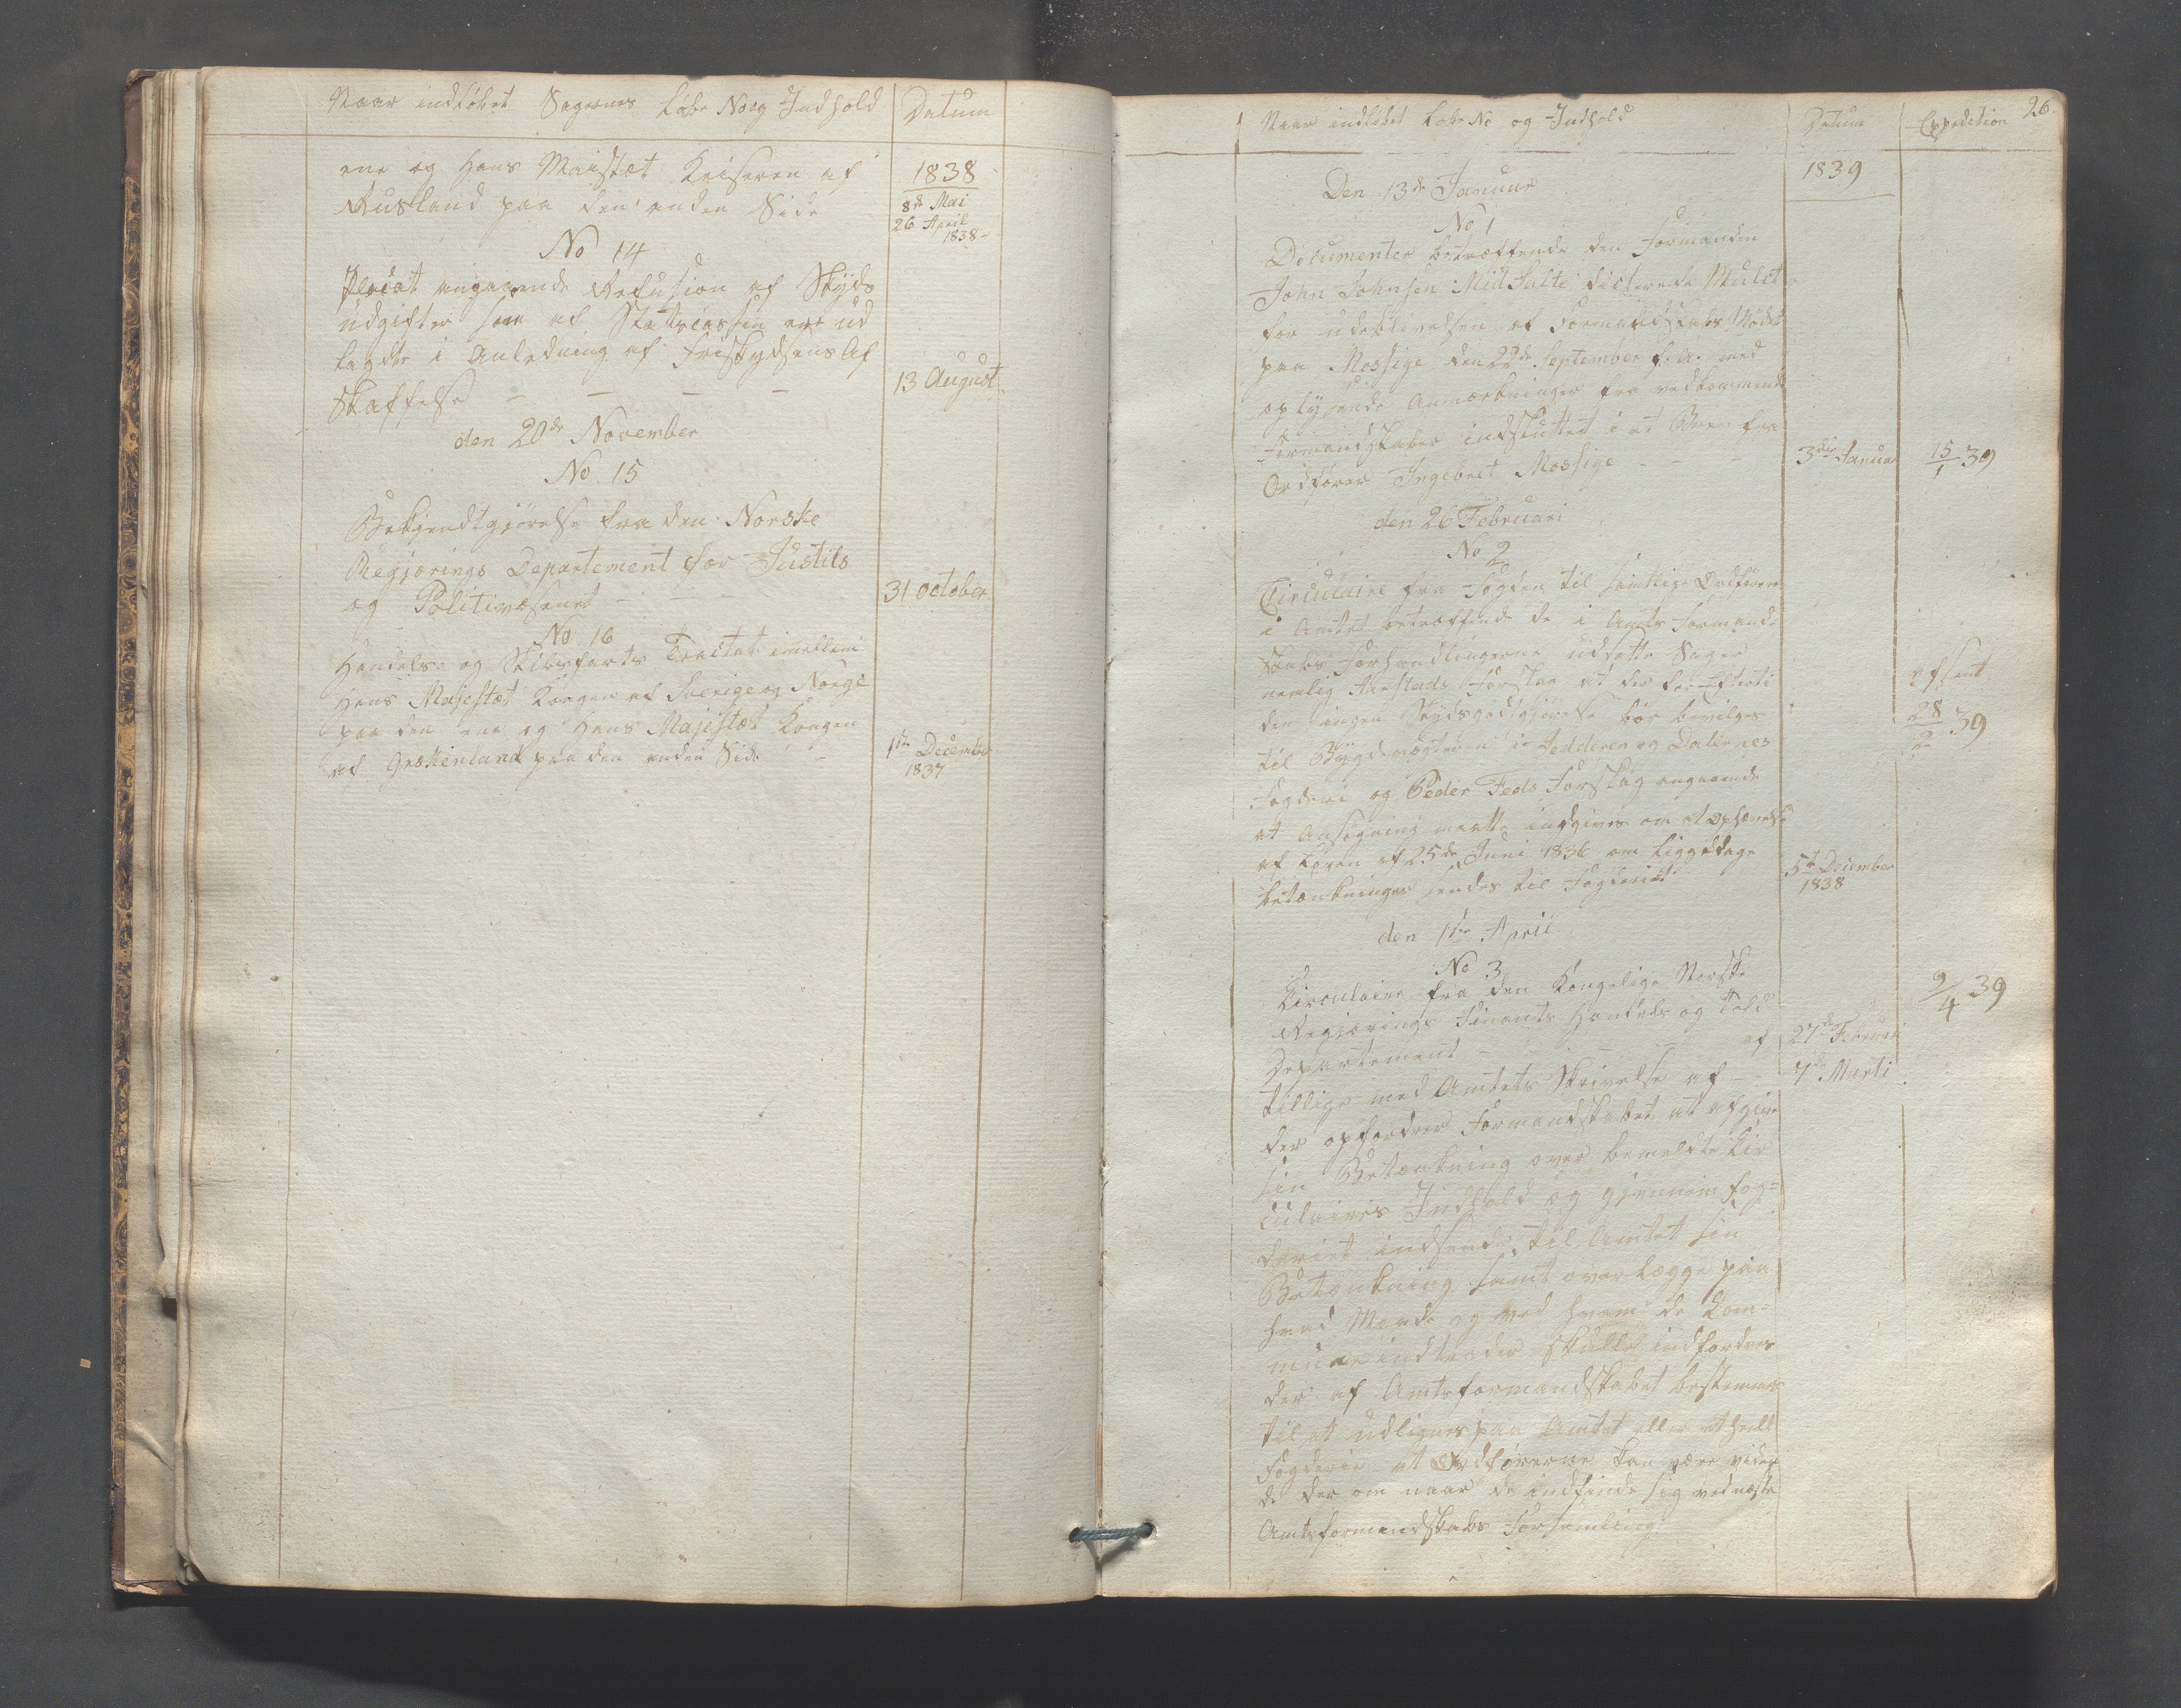 Naar indløbet Sagernes Løbe No og Indhold Datum
ene og Hans Maistæt Keiseren af
Rusland paa den anden Side
1838
8de Mai
26 April
1838-
No 14
Placat angaaende Refusion af Skyds
udgifter som af Statscassen ere ud
lagdte i Anledning af Friskydsens Af
skaffelse - - - -
13 August
den 20de November
No. 15
Bekjendtgjørelse fra den Norske
Regjerings Departement for Justits
og Politivæsenet - - -
31 October
No 16
Handels- og Skibsfarts Tractat imellem
Hans Majestæt Kongen af Sverige og Norge
paa den ene og Hans Majestæt Kongen
af Grækenland paa den anden Side -
1ste December
1837
26
Naar indløbet Løbe No og Indhold Datum Expedition
Den 13de Januar
1839
No 1
Documenter betræffende den Formanden
John Johnsen Midsalte dicterede Mulct
for udeblivelsen af Formandskabs Møde
paa Mossige den 29de September f. A. med
oplysende Anmærkninger fra vedkommende
Formandskaber indsluttet i et Brev fra
Ordfører Ingebret Mossige -
3die Januar
15/1 39
den 26 Februari
No 2
Circulaire fra Fogden til samtlige Ordførere
i Amtet betræffende de i Amts Formand-
skabs Forhandlingerne udsatte Sager
nemlig Aarstads Forslag at der for Efterti
den ingen Skydsgodtgjørelse bør bevilges
til Bygdevægterne i Jedderen og Dalernes
Fogderi og Peder Feds Forslag angaaende
at Ansøgning maatte indgives om at ophævelse
af Loven af 25de Juni 1836 om liggedage
betænkninger sendes til Fogderiet
5te December
1838
afsent
28/2 39
den 1ste April
No 3
Circulaire fra den Kongelige Norske
Regjerings Finants Handels og Told
Departement - - - af
27de Februari
9/4 39
tillige med Amtets Skrivelse af - -
7de Marti
der opfordrer Formandskabet at afgive
sin Betænkning over bemeldte Cir
culaires Indhold og gjennem Fog-
deriet indsende til Amtet sin
Betænkning samt overlægge paa
hvad Maade og ved hvem de Com-
mune indtægter skulle indfordres
der af Amtsformandskabet bestemmes
til at udlignes paa Amtet eller et heelt
Fogderie at Ordførerne kan være viden
de der om naar de indfinde sig ved næste
Amtsformandskabs Forsamling